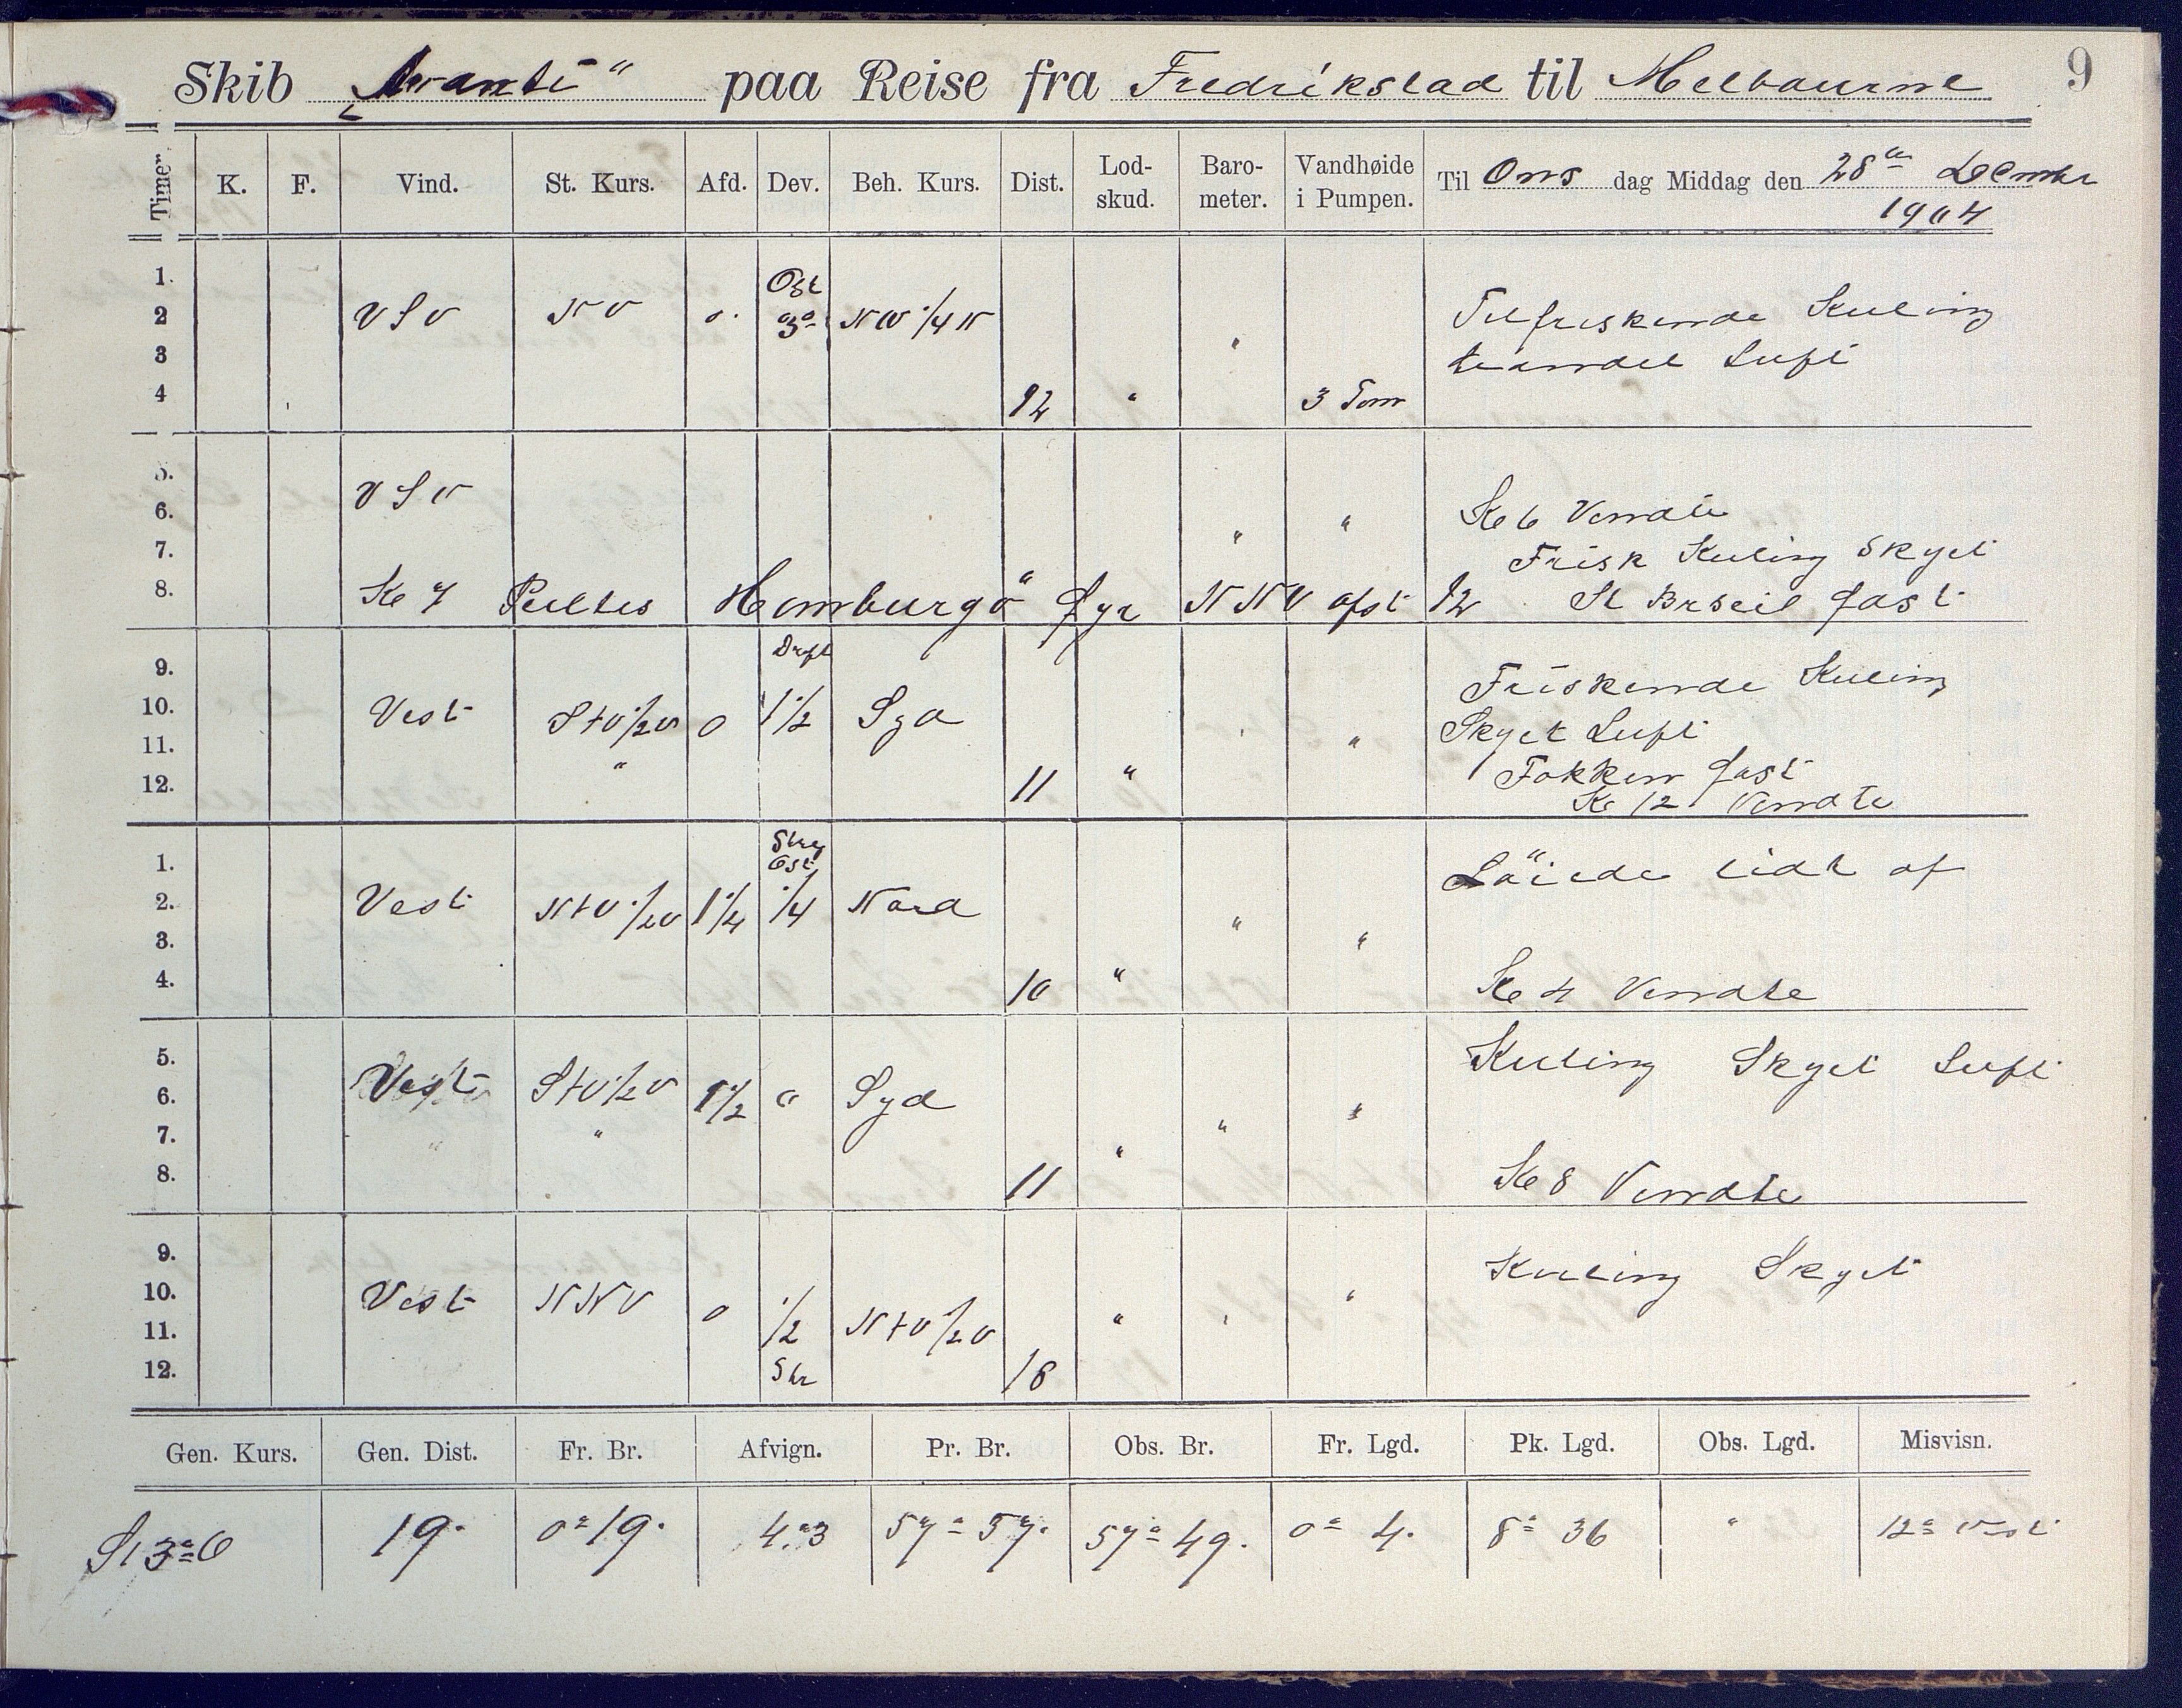 9
Skib „Avanti“ paa Reise fra Fredrikstad til Melbourne
Timer K. F. Vind. St. Kurs. Afd. Dev. Beh. Kurs. Dist. Lod-skud. Baro-meter. Vandhøide i Pumpen. Til Ons dag Middag den 28de
1904
1. Ost
2 VSV NV o. 3° NW 1/4 N " Tilfriskende Kuling
3 Luft
4 12 " 3 Tom
5. VSV
6. " " Kl 6 Vendte
7. Frisk Kuling Skyet
8. Kl 7 Peiltes Homburgö Fyr NNV afst 12 fast
9. Drift Friskende Kuling
10. Vest StV 1/2 V o 1 1/2 Syd Skyet Luft
11. " " Fokken fast
12. 11 " Kl 12 Vendte
1. Øst Löiede lidt af
2. Vest NtV 1/2 V 1 1/4 1/4 Nord "
3. "
4. 10 " Kl 4 Vendte
5. Kuling Skyet Luft
6. Vest StV 1/2 V 1 1/2 " Syd "
7. " " " "
8. 11 Kl 8 Vendte
9. Kuling Skyet
10. Vest NNV o 1/2 NtV 1/2 V "
11. " "
12. Str 18
Gen. Kurs. Gen. Dist. Fr. Br. Afvign. Pr. Br. Obs. Br. Fr. Lgd. Pk. Lgd. Obs. Lgd. Misvisn.
19. 0° 19. 4.3 57° 57. 57° 49. 0° 4. 8° 36 " 12° Vest